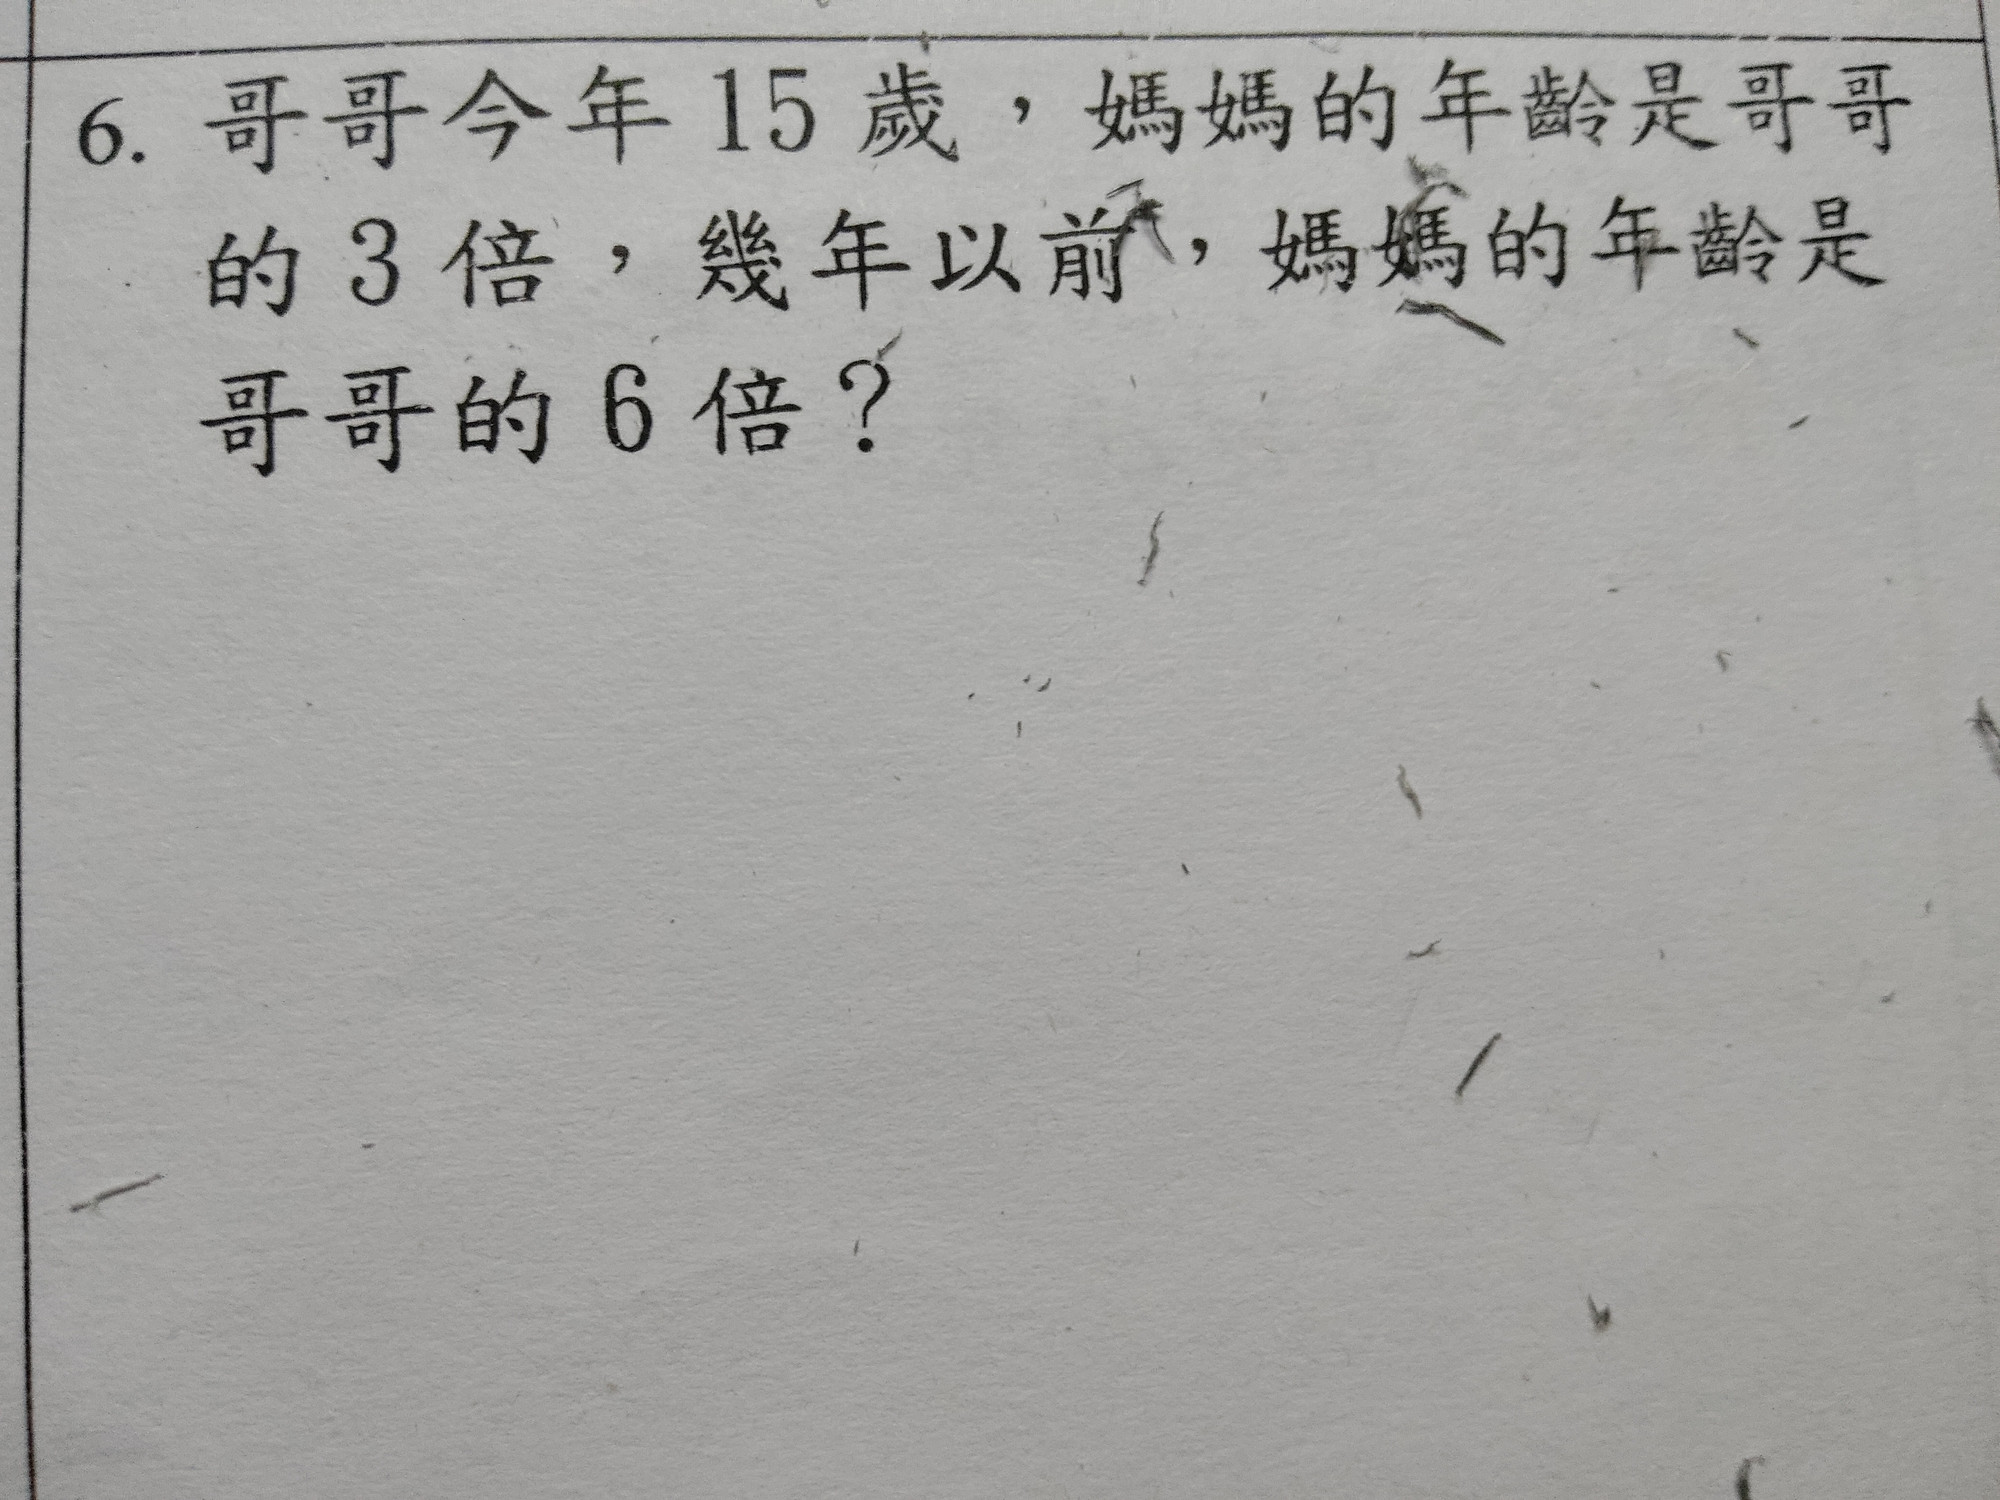 6. 哥哥今年15歲，媽媽的年齡是哥哥
的3倍，幾年以前，媽媽的年齡是
哥哥的6倍？